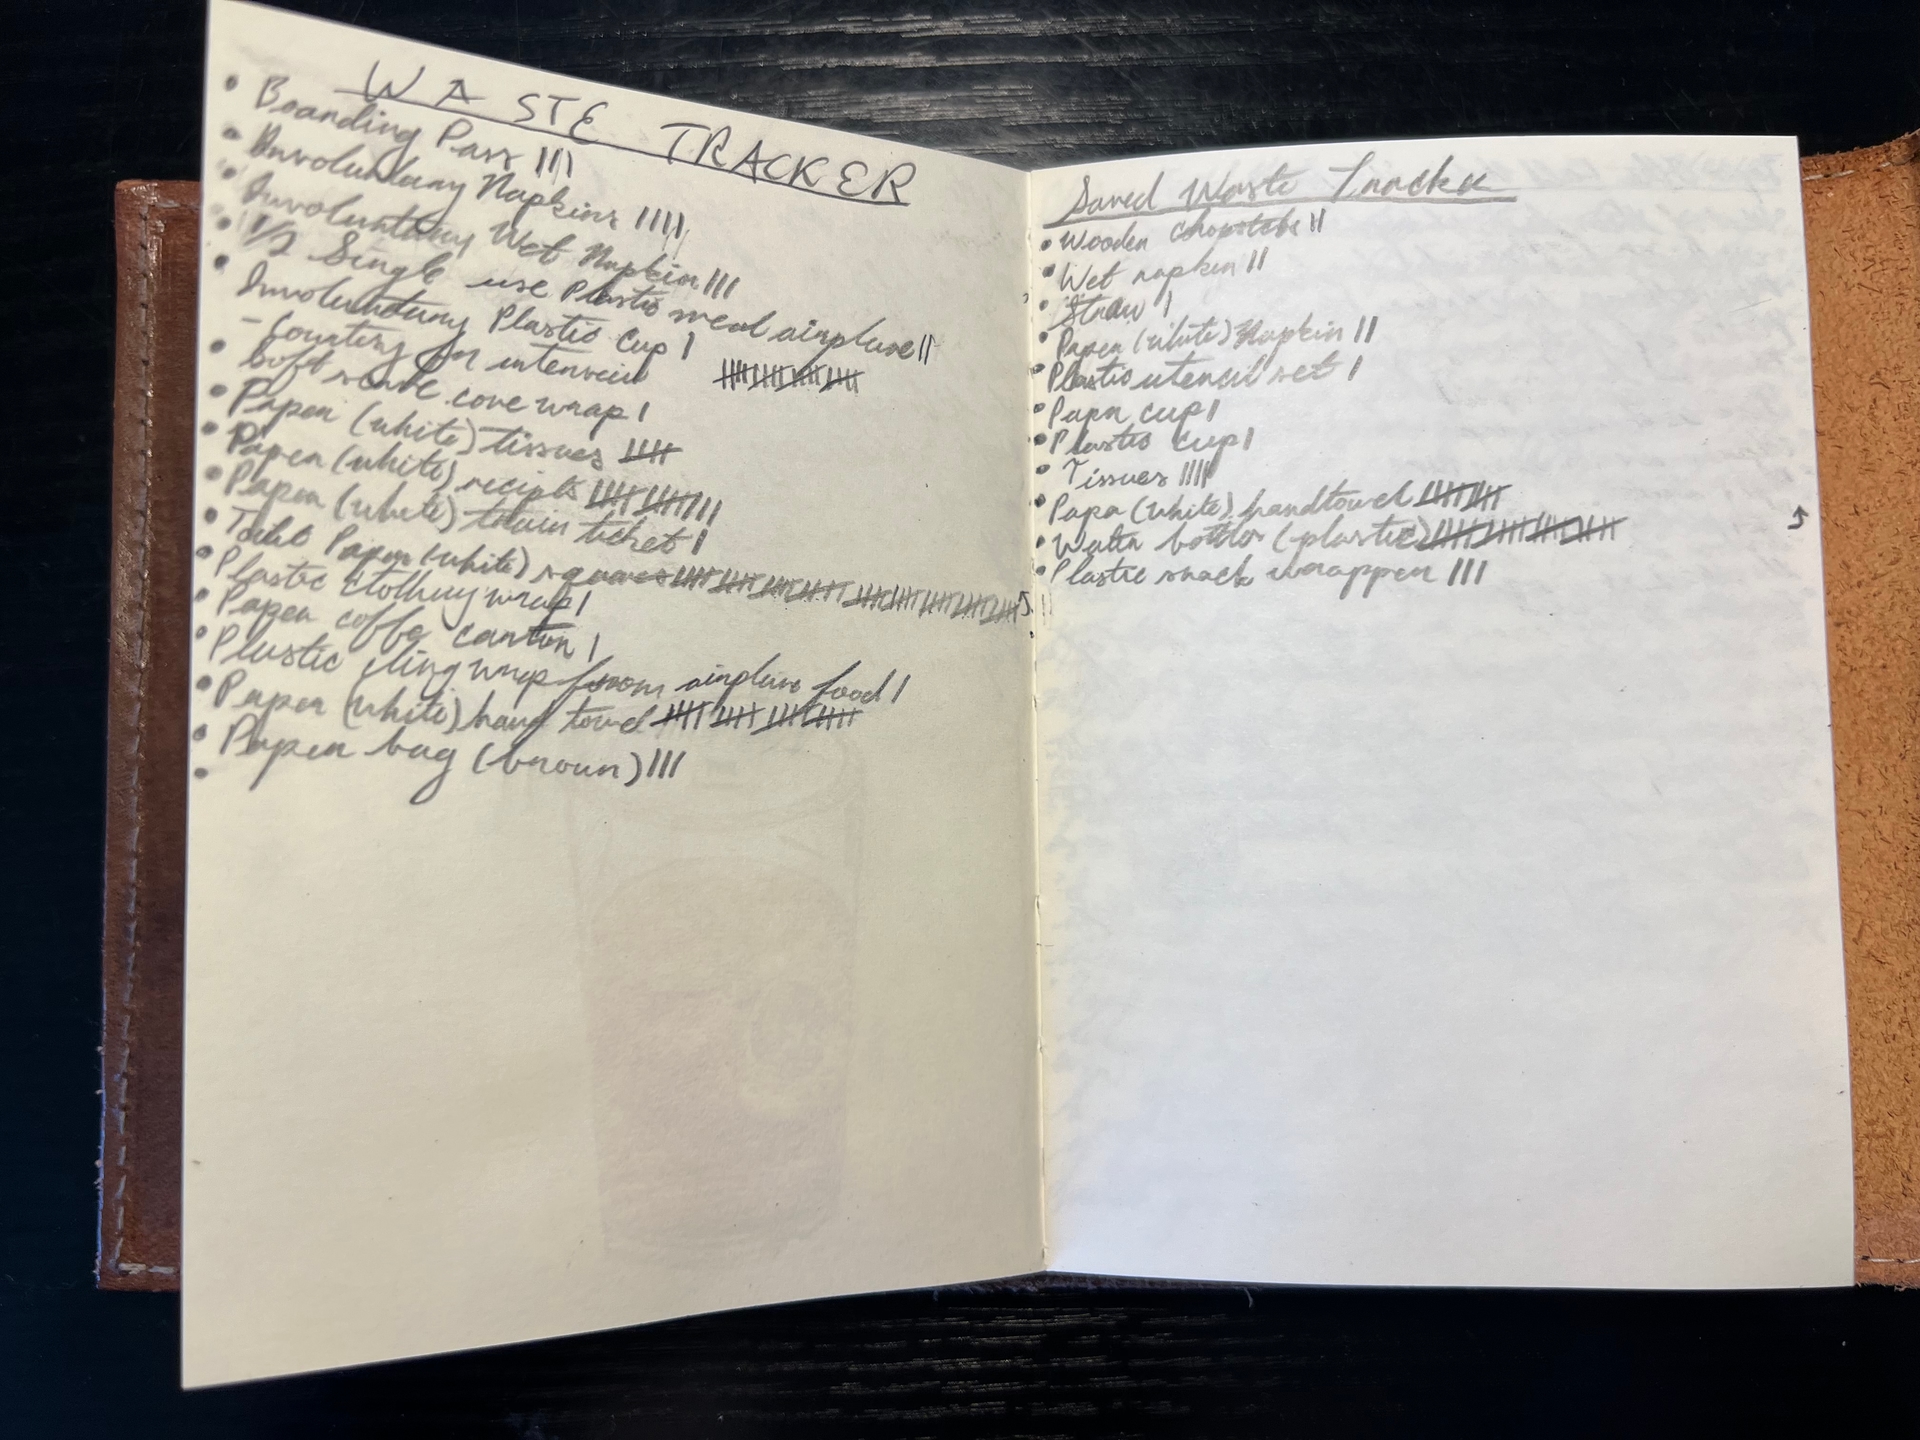 WASTE TRACKER
• Boarding Pass ||||
• Involuntary Napkins ||||
• Involuntary Wet Napkin |||
• 1/2 Single use Plastic meal airplane ||
• Involuntary Plastic Cup |
- Counting in interview
• Soft serve cone wrap |
• Paper (white) tissues
• Paper (white) recipts
• Paper (white) train ticket |
• Toilet Paper (white) squares
• Plastic Clothing wrap |
• Paper coffe carton |
• Plastic cling wrap from airplane food |
• Paper (white) hand towel
• Paper bag (brown) |||
•
Saved Waste Tracker
• Wooden chopsticks ||
• Wet napkin ||
• Straw |
• Paper (white) Napkin ||
• Plastic utencil set |
• Paper cup |
• Plastic cup |
• Tissues ||||
• Paper (white) handtowel
• Water bottle (plastic)
• Plastic snack wrapper |||